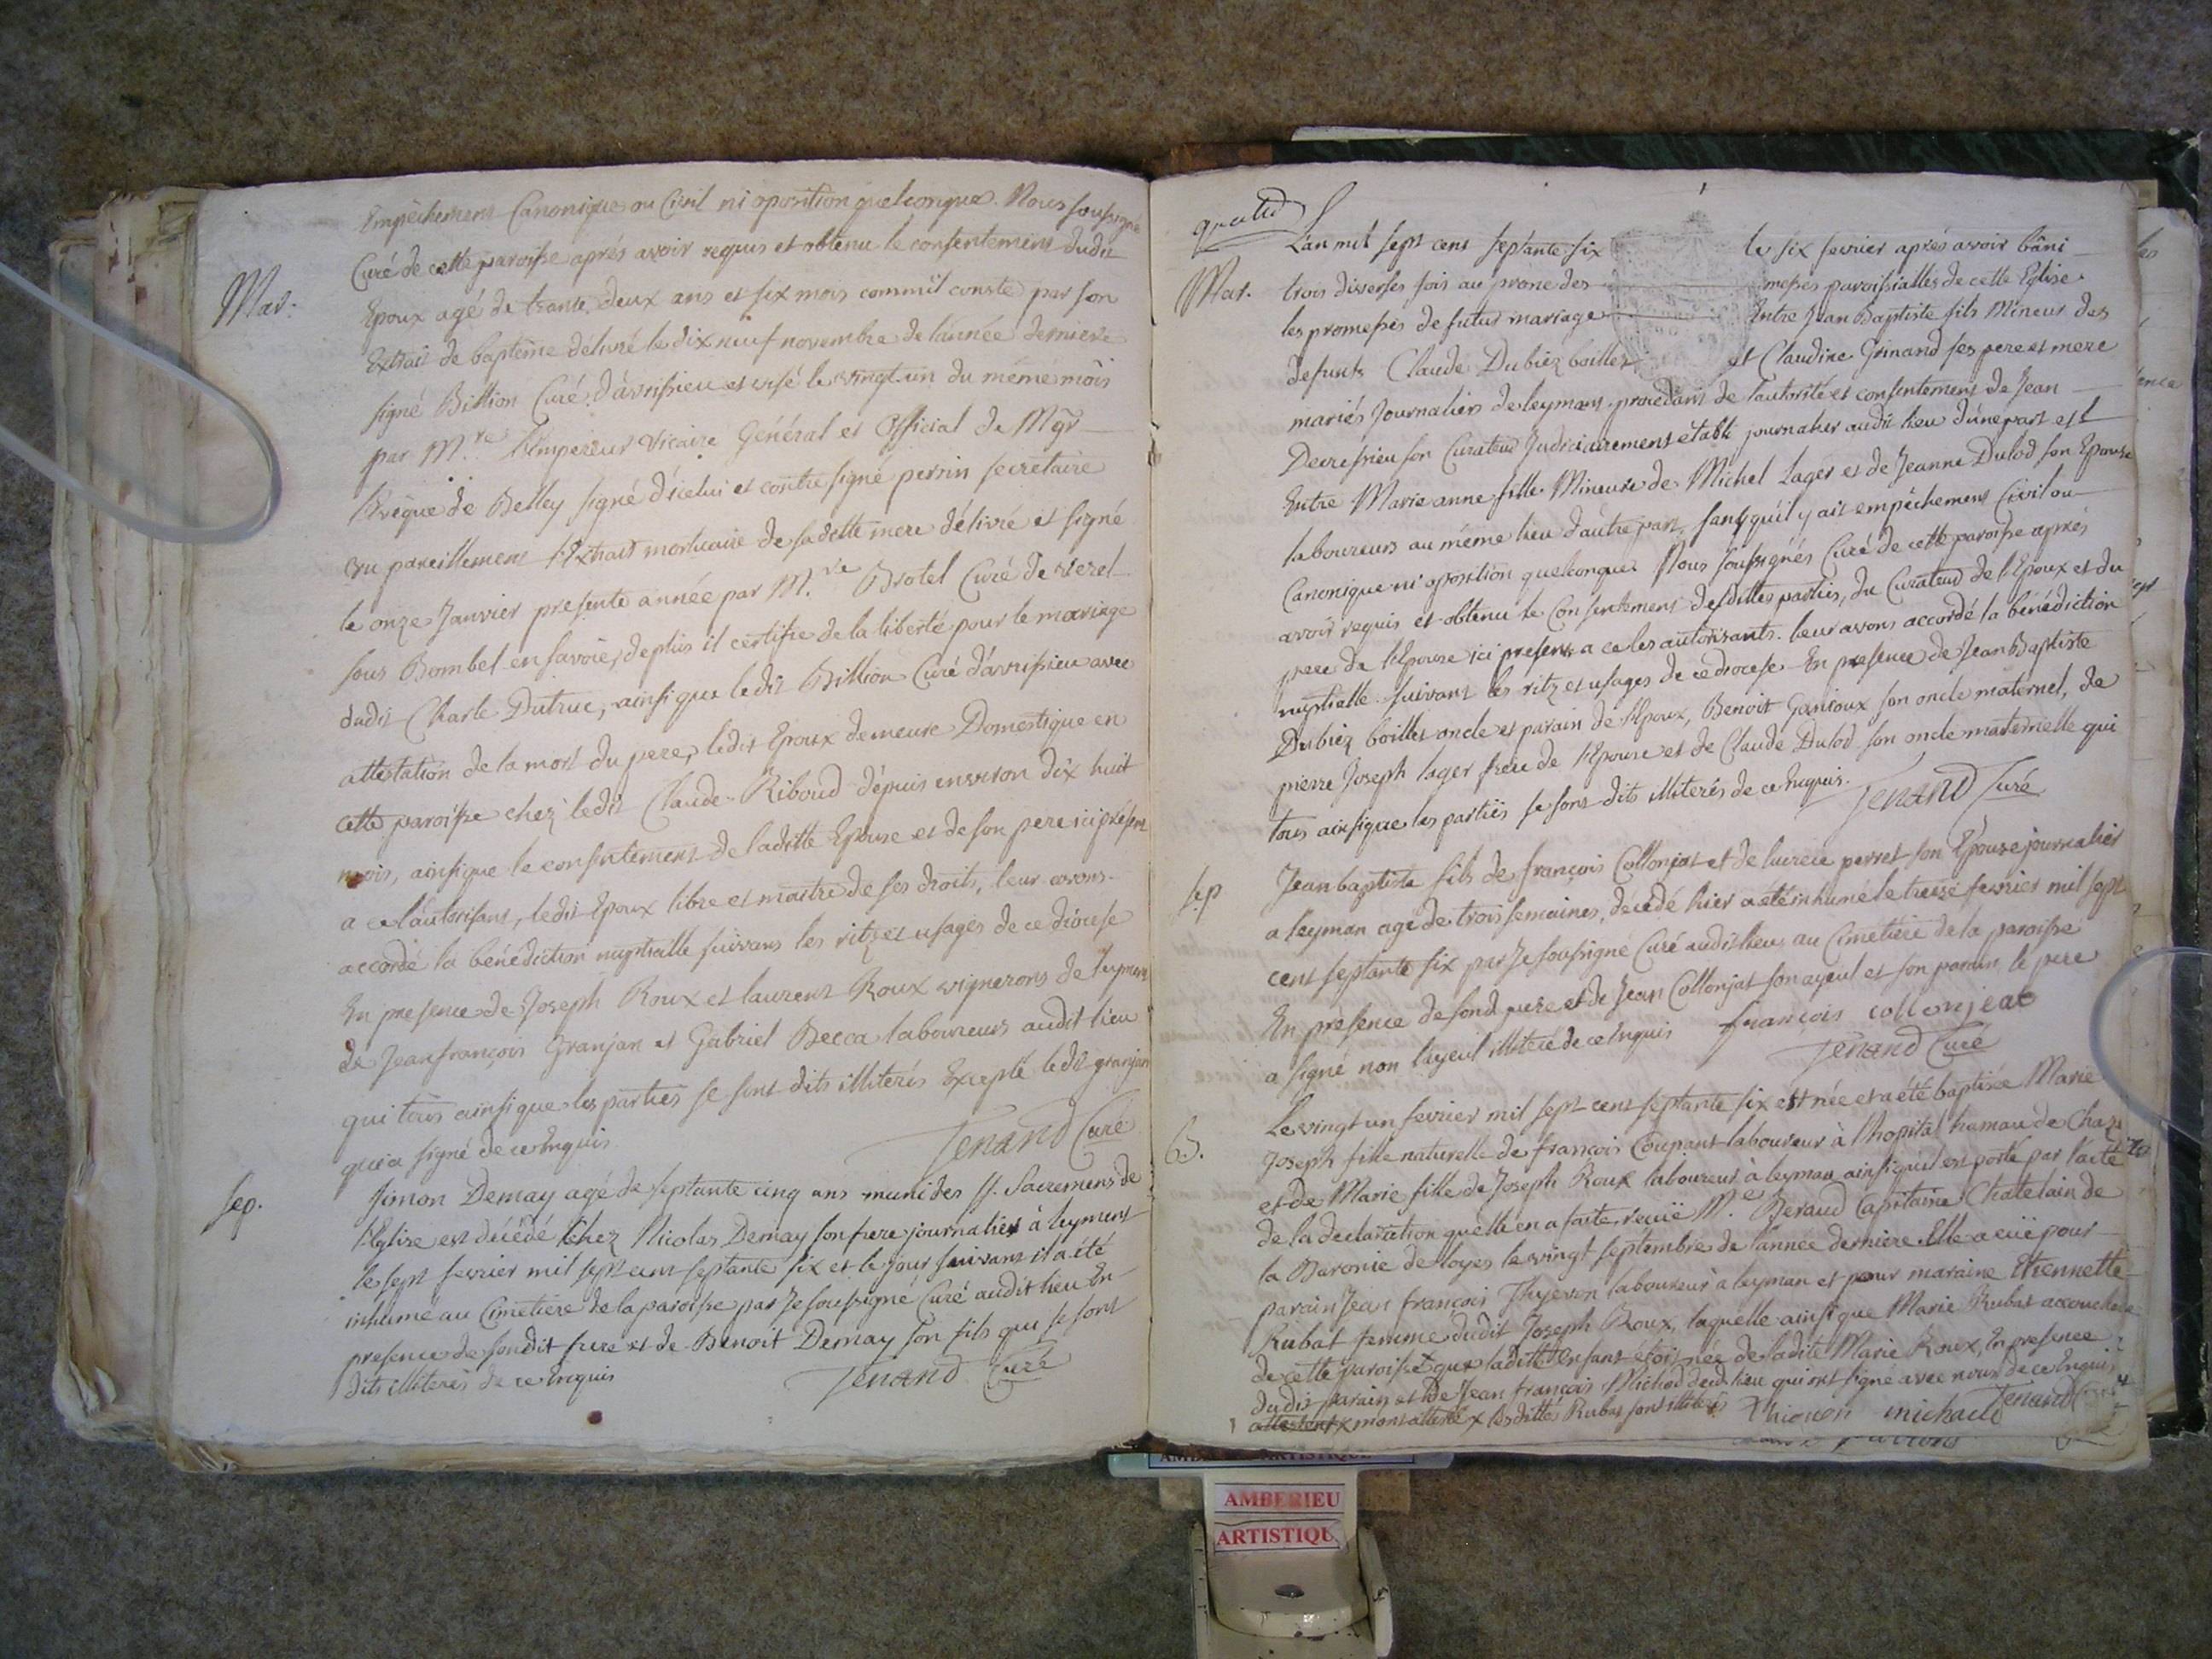 Empêchement Canonique ou Civil ni oposition quelconque. Nous soussigné
Curé de cette paroisse aprés avoir requis et obtenu le consentement dudit
Mar.
Epoux agé de trante deux ans et six mois comm'il conste par son
Extrait de baptême délivré le dix neuf novembre de l'année derniere
signé Billion Curé d'avrissieu et visé le vingt un du même mois
par M.re L'empereur Vicaire Général et Official de Mgr
l'Evêque de Belley signé d'icelui et contre signé perrin secretaire
vu pareillement l'Extrait mortuaire de sa ditte mere délivré et signé
le onze Janvier presente année par M.re Brotel Curé de
sous Bombel en savoie, deplus il certifie de la liberté pour le mariage
dudit Charle Dutruc, ainsi que ledit Billion Curé d'avrissieu avec
attestation de la mort du pere, ledit Epoux demeure Domestique en
cette paroisse chez ledit Claude Riboud dépuis environ dix huit
mois, ainsi que le consentement de laditte Epouse et de son pere ici présent
a ce l'autorisant, ledit Epoux libre et maitre de ses droits, leur avons
accordé la bénédiction nuptialle suivant les ritz et usages de ce diocese
En presence de Joseph Roux et laurent Roux vignerons de leyment
de Jean françois Granjan et Gabriel Becca laboureurs audit lieu
qui tous ainsi que les parties se sont dits illiterés Excepté ledit granjan
qui a signé de ce Enquis
Jenand Curé
Sep.
Simon Demay agé de septante cinq ans muni des SS. Sacremens de
l'Eglise est décédé Chez Nicolas Demay son frere journalier à leyment
le sept fevrier mil sept cent septante six et le jour suivant il a été
inhumé au Cimetiere de la paroisse par Je soussigné Curé audit lieu En
presence de son dit frere et de Benoit Demay son fils qui se sont
dits illiterés de ce Enquis
Jenand Curé
L'an mil sept cent septante six le six fevrier aprés avoir bâni
Mar.
trois diverses fois au prone des messes paroissialles de cette Eglise
les promesses de futur mariage Entre Jean Baptiste fils Mineur des
defunts Claude Dubiez boillet et Claudine Grinand ses pere et mere
mariés Journaliers de leyment procedant de l'autorité et consentement de Jean
Decressieu son Curateur Judiciairement établi journalier audit lieu d'une part et
Entre Marie anne fille Mineure de Michel Lager et de Jeanne Dulod son Epouse
laboureurs au même lieu d'autre part, sans qu'il y ait empêchement Civil ou
Canonique ni oposition quelconque Nous soussignés Curé de cette paroisse aprés
avoir requis et obtenu le Consentement desdittes parties, du Curateur de l'Epoux et du
pere de l'Epouse ici present a ce les autorisants. leur avons accordé la bénédiction
nuptialle suivant les ritz et usages de ce diocese En presence de Jean Baptiste
Dubiez boillet oncle et parain de l'Epoux, Benoit Ganioux son oncle maternel, de
pierre Joseph lager frere de l'Epouse et de Claude Dulod son oncle maternelle qui
tous ainsi que les parties se sont dits illiterés de ce Enquis.
Jenand Curé
Sep
Jean baptiste fils de françois Collonjat et de lucrece perret son Epouse journalier
a leyman agé de trois semaines, décédé hier a été inhumé le treize fevrier mil sept
cent septante six par Je soussigné Curé audit lieu au Cimetiere de la paroisse
En présence de sond. pere et de Jean Collonjat son ayeul et son parain, le pere
a signé non l'ayeul illiteré de ce Enquis françois collonjeat
Jenand Curé
B.
Le vingt un fevrier mil sept cent septante six est née et a été baptisée Marie
Joseph fille naturelle de françois Coupant laboureur à l'hopital hamau de Chaz
et de Marie fille de Joseph Roux laboureur à leyman ainsi qu'il est porté par l'acte
de la declaration qu'elle en a faite, recuë M.e Beraud Capitaine Chatelain de
la Baronie de loyes le vingt septembre de l'année derniere. Elle a eüe pour
parain Jean françois Thyevon laboureur à leyman et pour maraine Etiennette
Rubat femme dudit Joseph Roux, laquelle ainsi que Marie Rubat accoucheuse
de cette paroisse que laditte Enfant étoit née de ladite Marie Roux, En presence
dudit parain et de Jean françois Michod dud. lieu qui ont signé avec nous de ce Enquis
attestent x m'ont attesté x lesdittes Rubat sont illiterés Thionon michaud Jenand Curé
AMBERIEU
ARTISTIQU